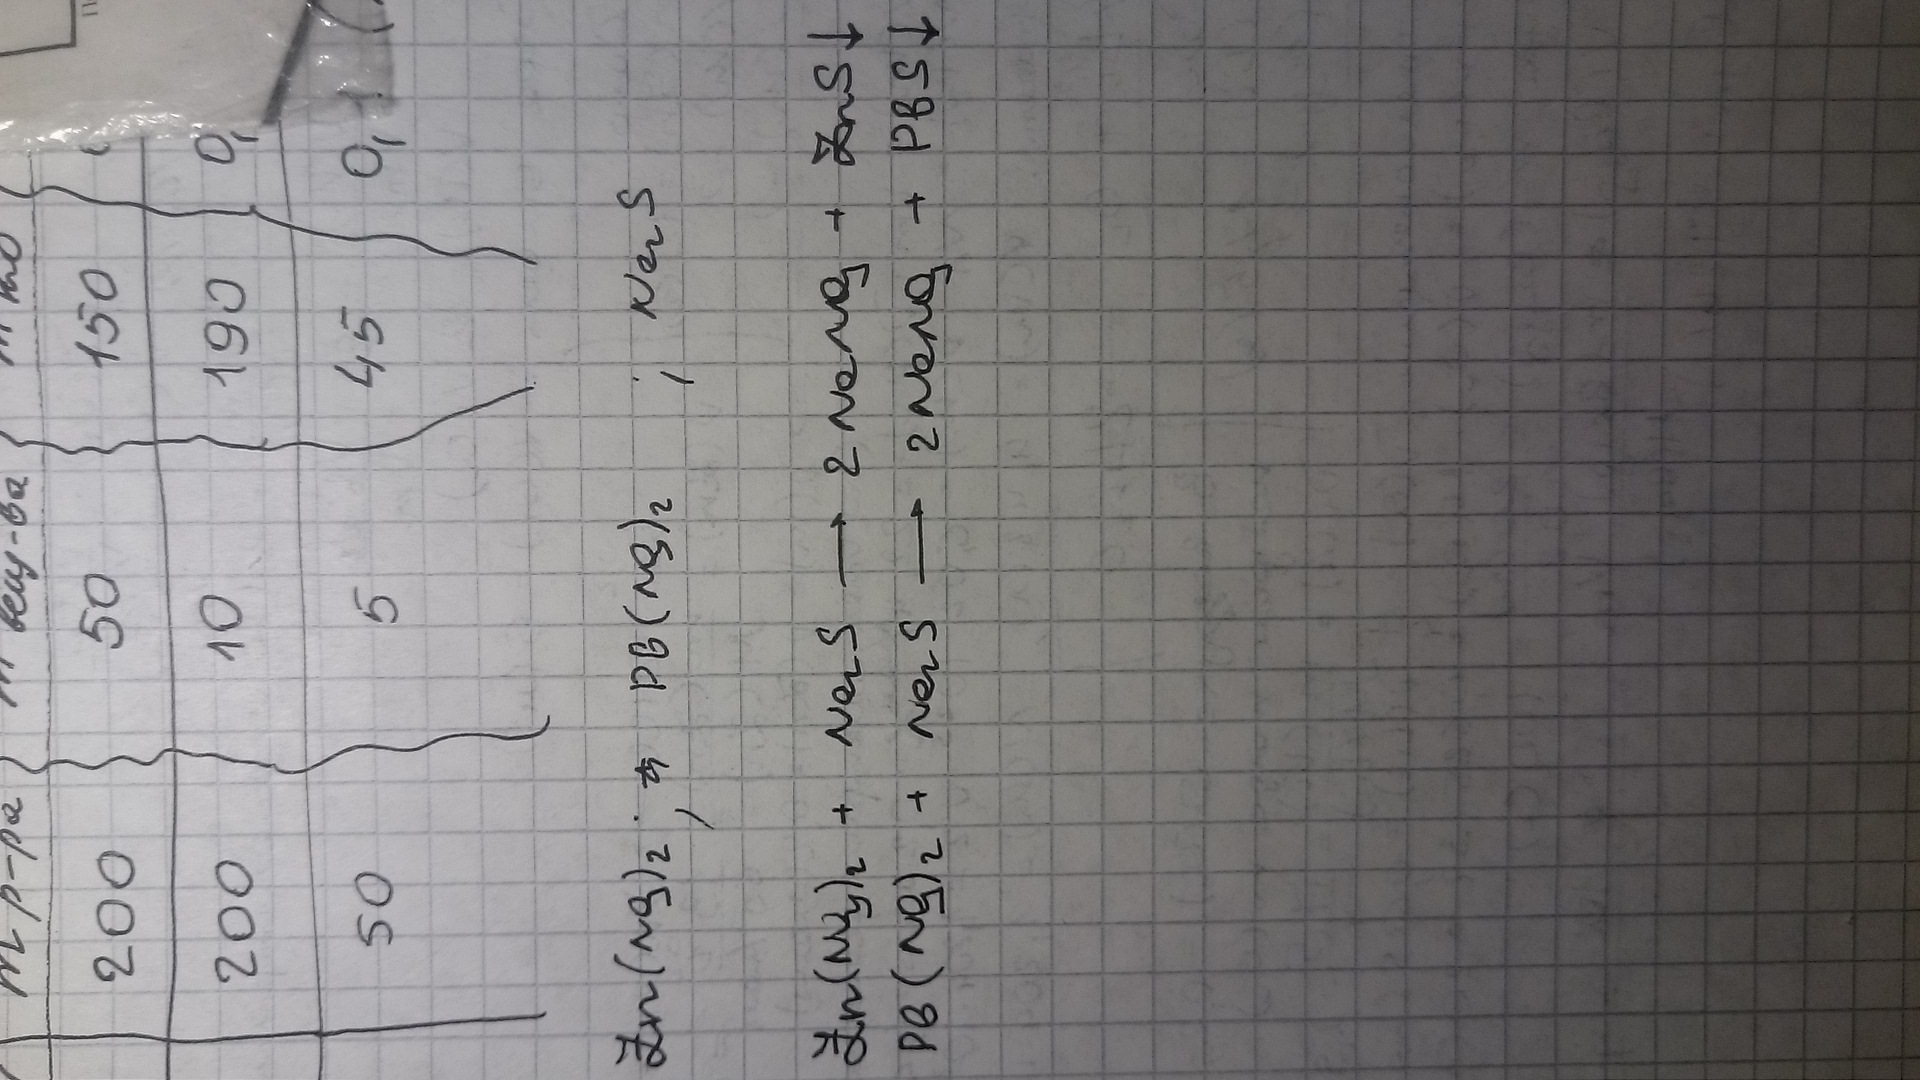 m р-ра m вещ-ва
200 50 150
200 10 190 0,
50 5 45 0,
Zn(NO3)2 ; PB(NO3)2 ; Na2S
Zn(NO3)2 + Na2S → 2NaNO3 + ZnS↓
PB(NO3)2 + Na2S → 2NaNO3 + PBS↓